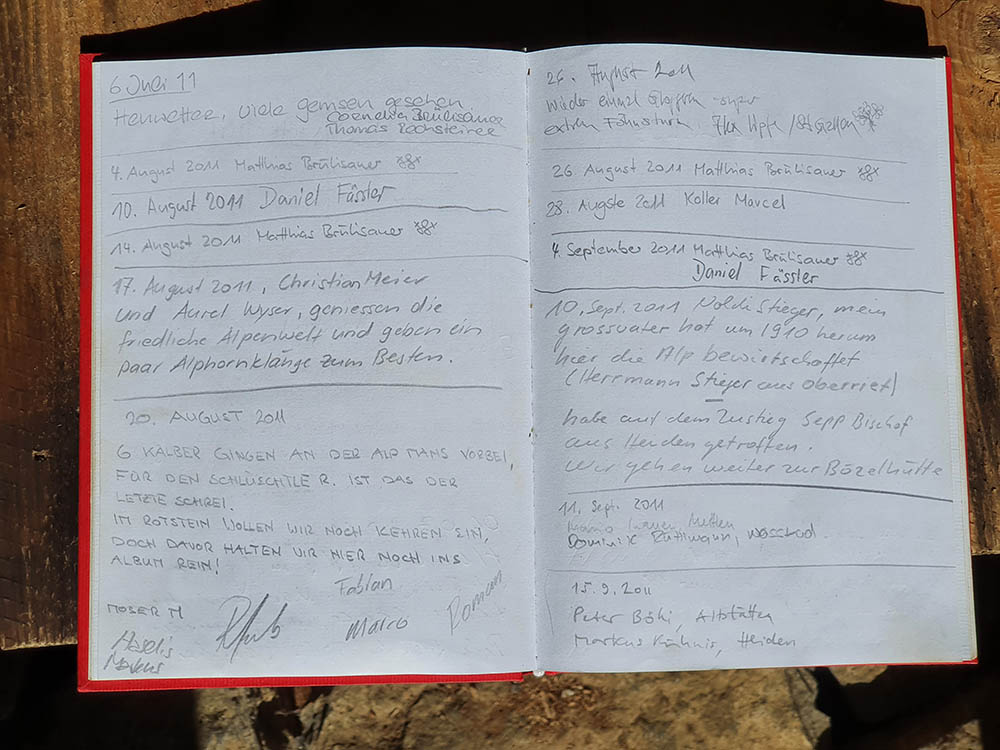 6 Juli 11
Heuwetter, viele gemsen gesehen
Cornelia Brülisauer
Thomas Rechsteiner
4. August 2011 Matthias Brülisauer
10. August 2011 Daniel Fässler
14. August 2011 Matthias Brülisauer
17. August 2011, Christian Meier
und Aurel Wyser, geniessen die
friedliche Alpenwelt und geben ein
paar Alphornklänge zum Besten.
20. AUGUST 2011
6 KÄLBER GINGEN AN DER ALP MANS VORBEI,
FÜR DEN SCHLÜSCHTLER. IST DAS DER
LETZTE SCHREI.
IM ROTSTEIN WOLLEN WIR NOCH KEHREN EIN,
DOCH DAVOR HALTEN WIR HIER NOCH INS
ALBUM REIN!
Fabian
MOSER M
Marco
Roman
Markus
26. August 2011
wieder einmal super
extrem Föhnsturm. /St Gallen
26 August 2011 Matthias Brülisauer
28. Augste 2011 Koller Marcel
4. September 2011 Matthias Brülisauer
Daniel Fässler
10. Sept. 2011 Noldi Stieger, mein
grossvater hat um 1910 herum
hier die Alp bewirtschaftet
(Herrmann Stieger aus oberriet)
habe auf dem Zustieg Sepp Bischof
aus Heiden getroffen.
Wir gehen weiter zur Bözelhütte
11. Sept. 2011
Dominik
15.9.2011
Peter Böhi, Altstätten
Markus Kühnis, Heiden